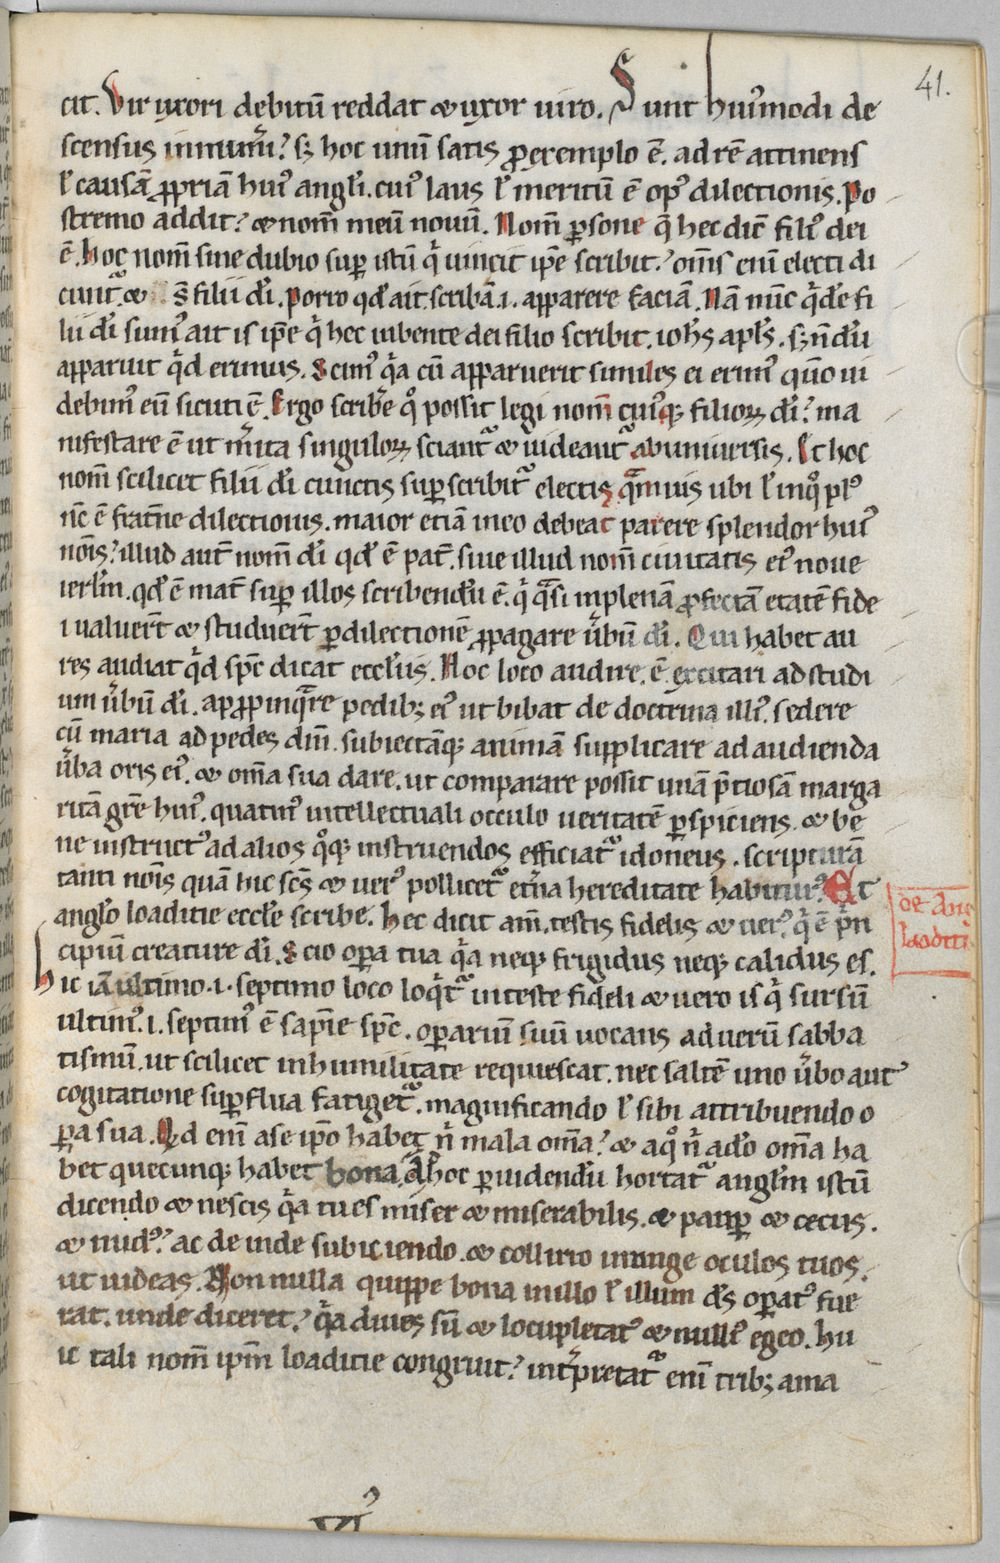 41.
cit. Vir uxori debitū reddat & uxor uiro. Sunt huiꝰmodi de
scensus innumͥi? sꝫ hoc unū satis ꝓexemplo ē. ad rē attinens
ł causā ꝓpriā huiꝰ angłi. cuiꝰ laus ł meritū ē opꝰ dilectionis. Po
stremo addit? & nom̄ meū nouū. Nom̄ ꝑsone q̄ hec dic̄ filiꝰ dei
ē. hoc nom̄ sine dubio suꝑ istū qͥ uincit ip̄e scribit? om̄s enī electi di
cunt᷑ & s̄ filii dī. Porro qd̄ ait scribā .i. apparere faciā. Nā nūc qͥdē fi
lii dī sumꝰ ait is ip̄e qͥ hec iubente dei filio scribit. ioħs apłs. sꝫ n̄dū
apparuit qͥd erimus. Scimꝰ qͥa cū apparuerit similes ei erimꝰ qm̄o ui
debimꝰ eū sicuti ē. Ergo scribͤe qͦ possit legi nom̄ cuiꝰqꝫ filioꝝ dī? ma
nifestare ē ut mͥita singuloꝝ sciant᷑ & uideant᷑ ab uniuersis. Et hoc
nom̄ scilicet filii dī cunctis suꝑscribit᷑ electis qͣmuis ubi ł in qͦ plꝰ
nc̄ ē frat̄ne dilectionis. maior etiā in eo debeat parere splendor huiꝰ
noīs? illud aut̄ nom̄ dī qd̄ ē pat̄. siue illud nom̄ ciuitatis eiꝰ noue
ierłm. qd̄ ē mat̄ suꝑ illos scribendū ē. qͥ qͣsi in plenā ꝓfectā etatē fide
i ualuer̄t & studuer̄t ꝑ dilectionē ꝓpagare ūbū dī. Qui habet au
res audiat qͥd spc̄ dicat eccłiis. Hoc loco audire. ē excitari ad studi
um ūbū dī. apꝓpinqͣre pedibꝫ eiꝰ ut bibat de doctrina illiꝰ. sedere
cū maria ad pedes dnī. subiectāqꝫ animā supplicare ad audienda
ūba oris eiꝰ. & om̄a sua dare. ut comparare possit unā p̄tiosā marga
ritā gr̄e huiꝰ. quatinꝰ intellectuali occulo ueritatē ꝑspiciens. & be
ne instructꝰ ad alios qͦqꝫ instruendos efficiat᷑ idoneus. scripturā
tanti noīs quā hic sc̄s & uerꝰ pollicet᷑ et̄na hereditate habiturꝰ. Et
angło loaditie eccłe scribe. hec dicit am̄. testis fidelis & uerꝰ. qͥ ē pͥn
cipiū creature dī. Scio oꝑa tua qͥa neqꝫ frigidus neqꝫ calidus es.
de Ang
laoditi
hic iā ultimo .i. septimo loco loqͥt᷑ in teste fideli & uero is qͥ sursū
ultimꝰ .i. septimꝰ ē sapīe spc̄. oꝑariū suū uocans ad uerū sabba
tismū. ut scilicet in humilitate requiescat. nec saltē uno ūbo aut
cogitatione suꝑflua fatiget᷑. magnificando ł sibi attribuendo o
ꝑa sua. Qd enī a se ip̄o habet nͥ mala om̄a? & a qͦ nͥ a dō om̄a ha
bet quecunqꝫ habet bona. Ad hoc ꝑuidendū hortat᷑ angłm istū
dicendo & nescis qͥa tu es miser & miserabilis. & pauꝑ & cecus.
& nudꝰ? ac deinde subiciendo. & collirio inunge oculos tuos.
ut uideas. Non nulla quippe bona in illo ł illum ds̄ oꝑatꝰ fue
rat. unde diceret? qͥa diues sū & locupletatꝰ & nullꝰ egeo. hu
ic tali nom̄ ipm̄ loaditie congruit? intͥpretat᷑ enī tribꝫ ama